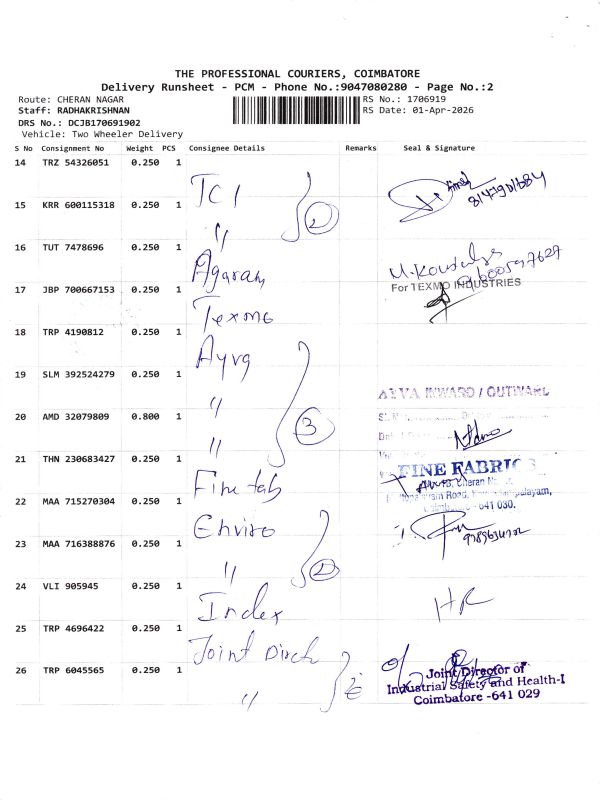 THE PROFESSIONAL COURIERS, COIMBATORE
Delivery Runsheet - PCM - Phone No.:9047080280 - Page No.:2
Route: CHERAN NAGAR
RS No.: 1706919
Staff: RADHAKRISHNAN
RS Date: 01-Apr-2026
DRS No.: DCJB170691902
Vehicle: Two Wheeler Delivery
S No Consignment No Weight PCS Consignee Details Remarks Seal & Signature
14 TRZ 54326051 0.250 1 TCI
15 KRR 600115318 0.250 1 "
2
16 TUT 7478696 0.250 1 Agaram
17 JBP 700667153 0.250 1 Texmo
For TEXMO INDUSTRIES
18 TRP 4190812 0.250 1 Ayva
19 SLM 392524279 0.250 1 "
AYVA INWARD / OUTWARD
20 AMD 32079809 0.800 1 "
3
21 THN 230683427 0.250 1 Fine fab
FINE FABRICS
Road,
641 030.
22 MAA 715270304 0.250 1 Enviro
23 MAA 716388876 0.250 1 "
2
24 VLI 905945 0.250 1 Index HR
25 TRP 4696422 0.250 1 Joint Dirch
26 TRP 6045565 0.250 1 "
2
Joint Director of
Industrial Safety and Health-I
Coimbatore -641 029